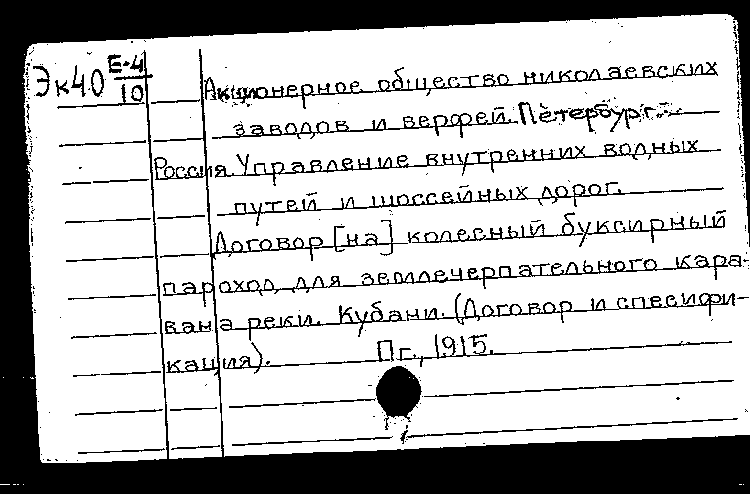 Эк40 Е-4/10
Акционерное общество николаевских
заводов и верфей. Петербург.
Россия. Управление внутренних водных
путей и шоссейных дорог.
Договор [на] колесный буксирный
пароход для землечерпательного кара-
вана реки Кубани. (Договор и спесифи-
кация). Пг., 1915.